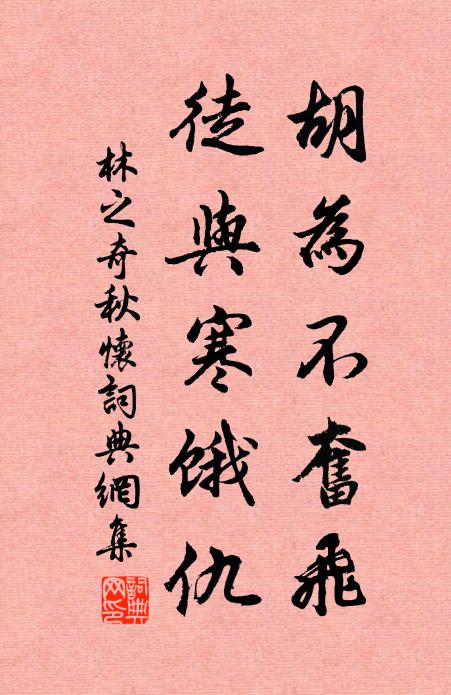 胡為不奮飛
徒與寒餓仇
林之奇秋懷詞典網集
詞典
网印